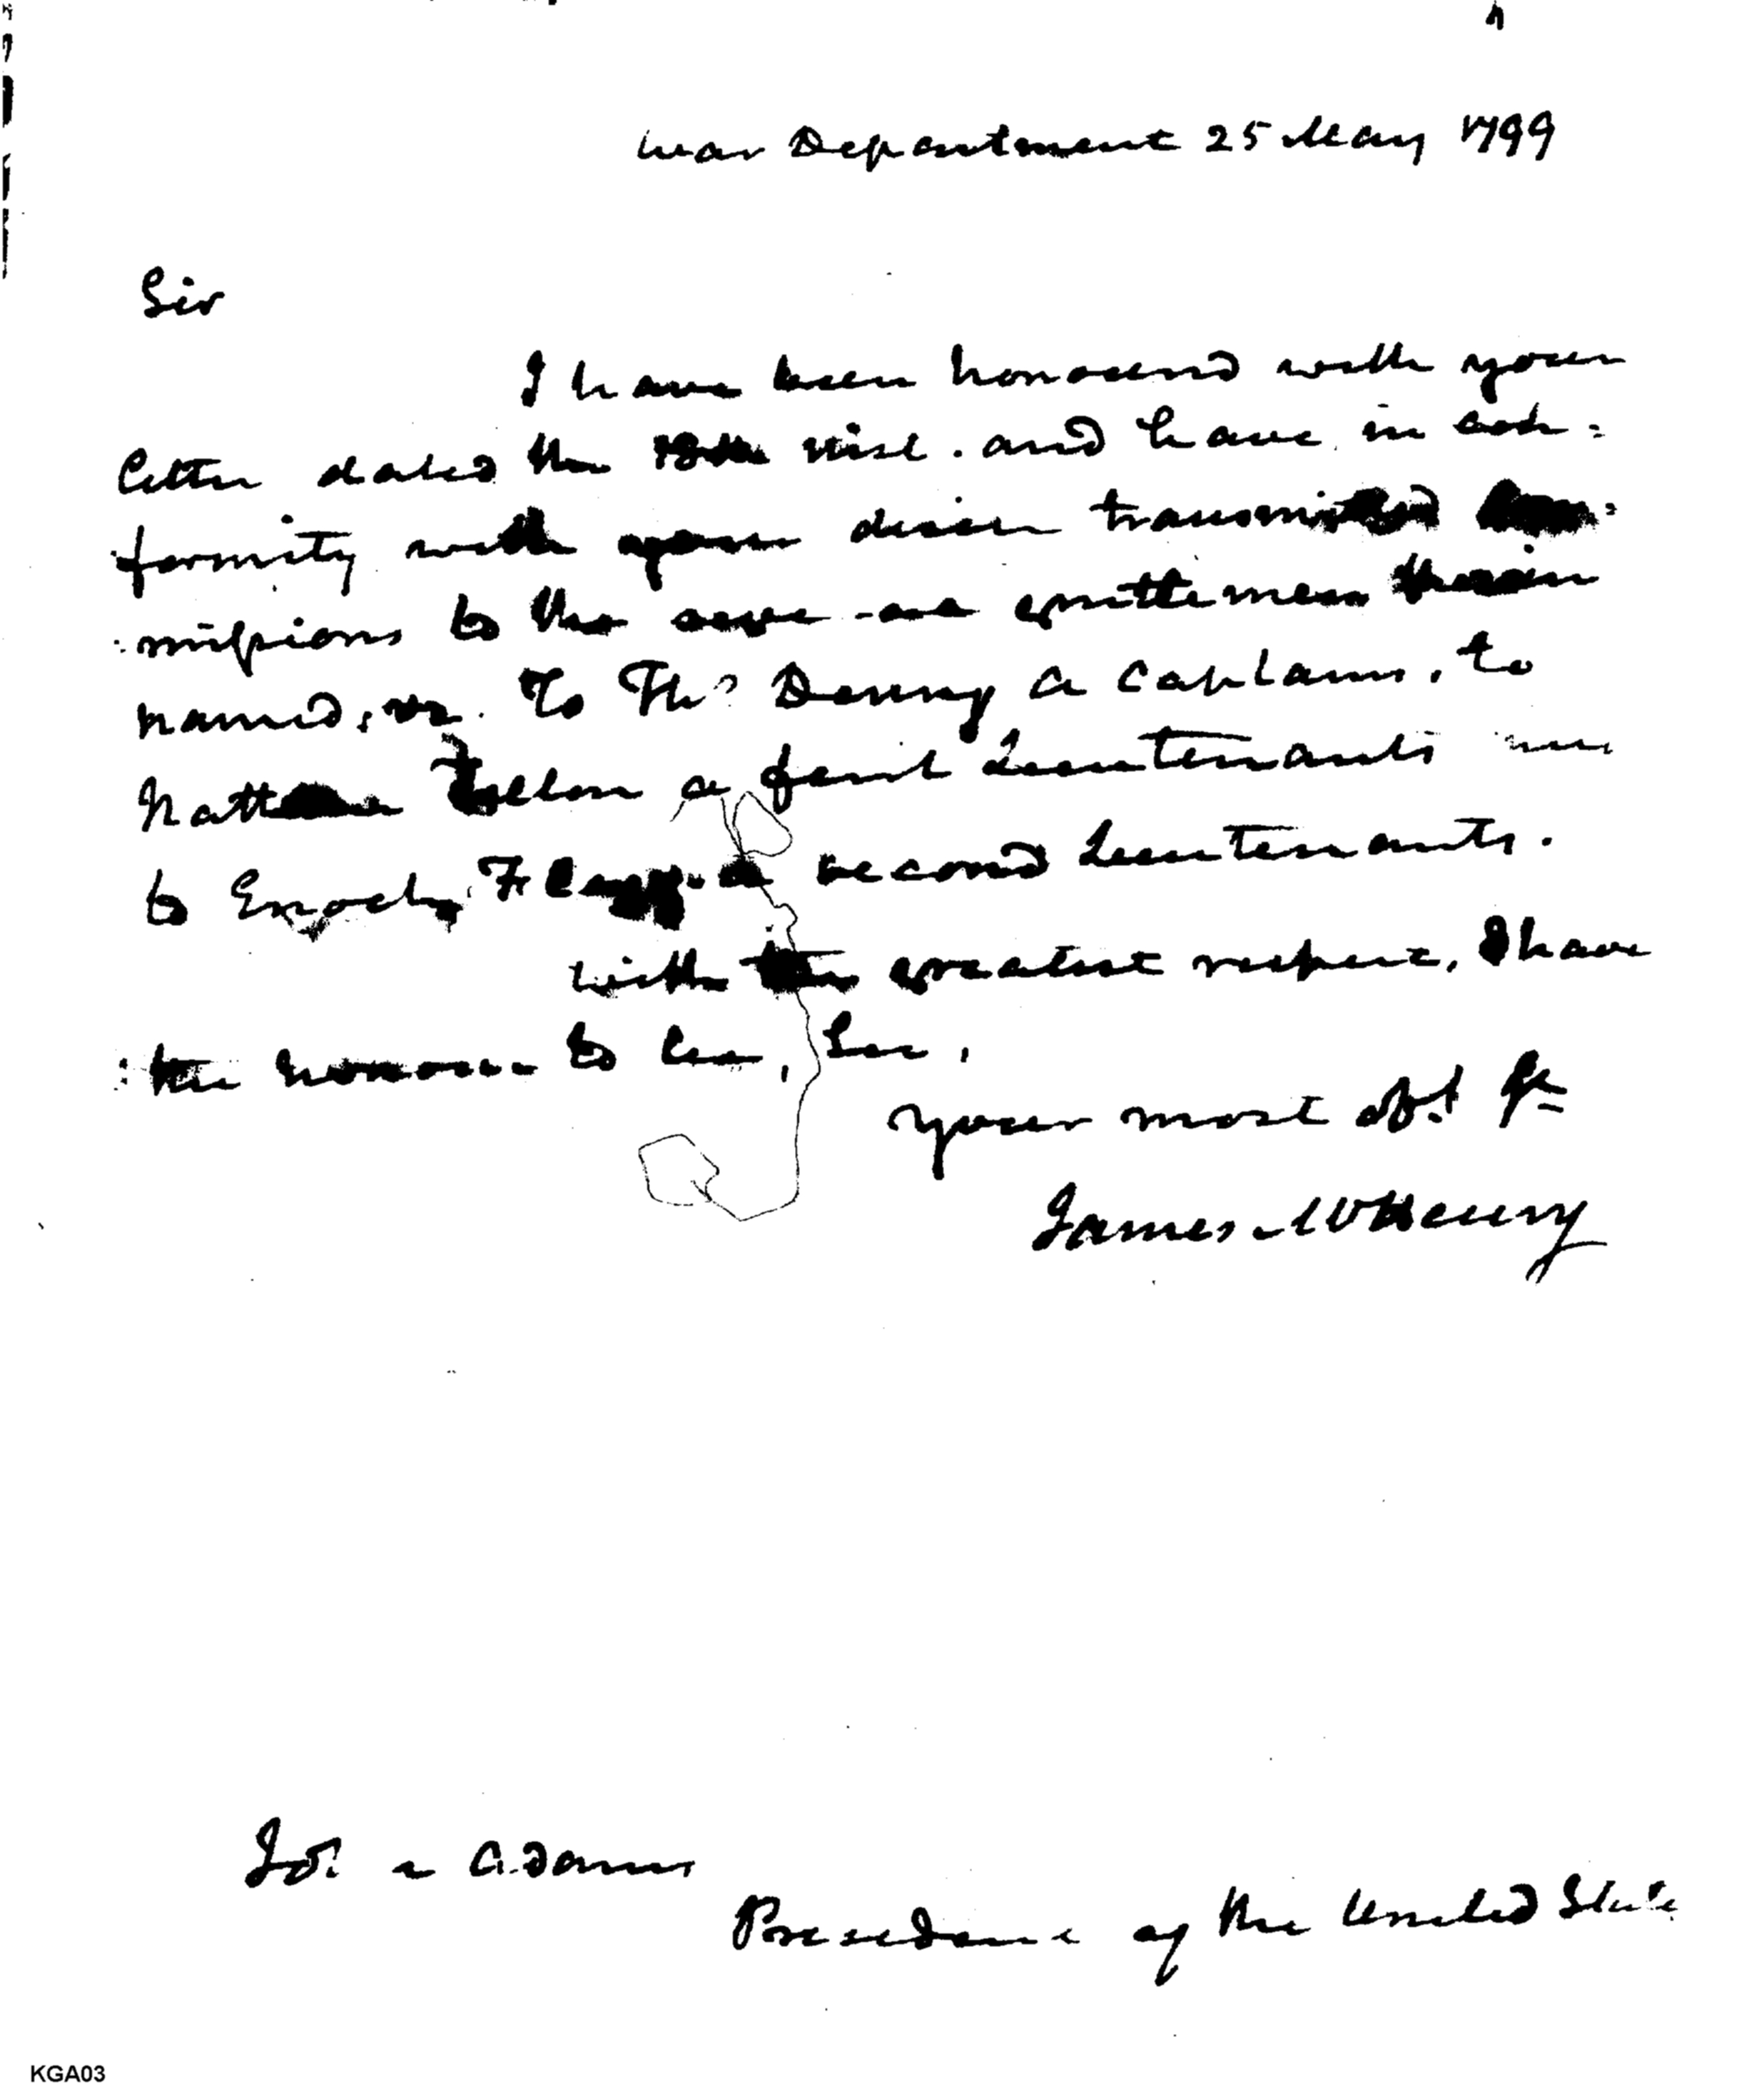 War Department 25 May 1799
Sir
I have been honoured with your
letter dated the 18th inst. and have in con=
formity with your desire transmitted Com=
=missions to the several gentlemen therein
named, viz. To Tho.s Denny a captains, to
Nathan a first Lieutenants and
to Enoch Flagg a second Lieutenants.
with the greatest respect, I have
the honour to be, Sir,
your most obt. St
James McHenry
Adams
President of the United States
KGA03